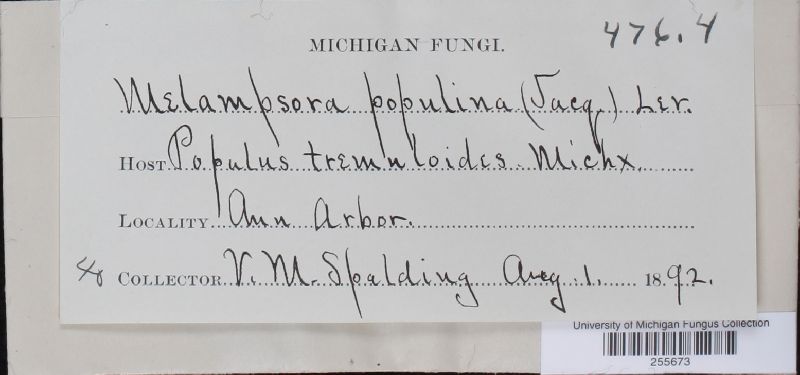 476.4
MICHIGAN FUNGI.
Melampsora populina (Jacq.) Lev.
HOST Populus tremuloides. Michx.
LOCALITY Ann Arbor.
COLLECTOR V. M. Spalding Aug. 1. 1892.
University of Michigan Fungus Collection
255673